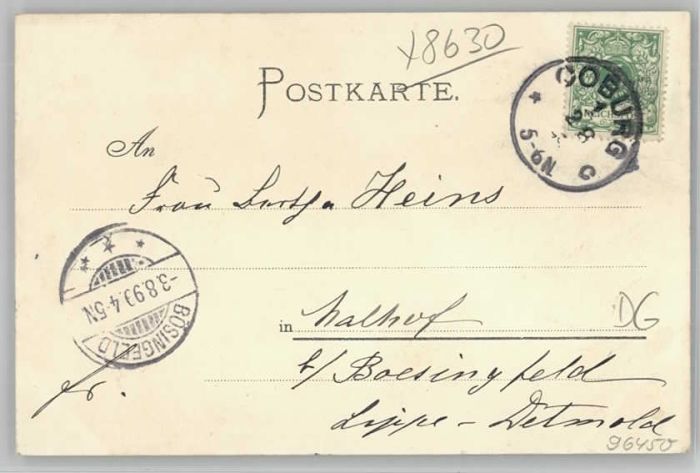 x8630
POSTKARTE.
COBURG
5-6N
An
Frau Heins
BÖSINGFELD
-3.8.99.4-5N
in Malhof
DG
b/Boesingfeld
fr.
Lippe-Detmold
96450